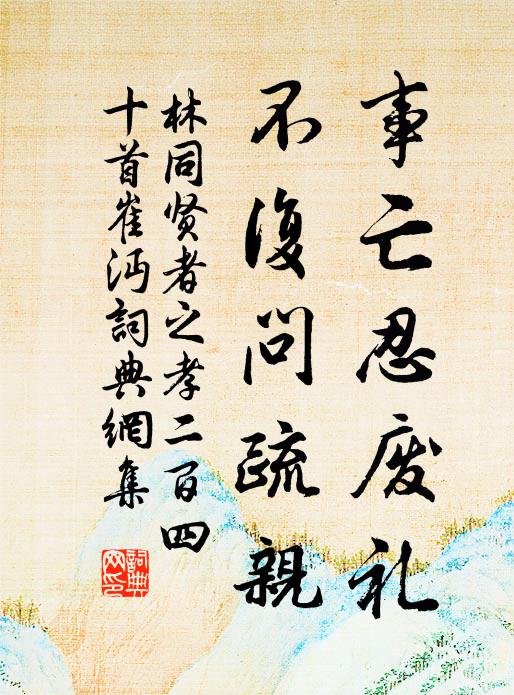 事亡忍废礼
不復问疏親
林同贤者之孝二百四
十首崔沔詞典網集
詞典
网印